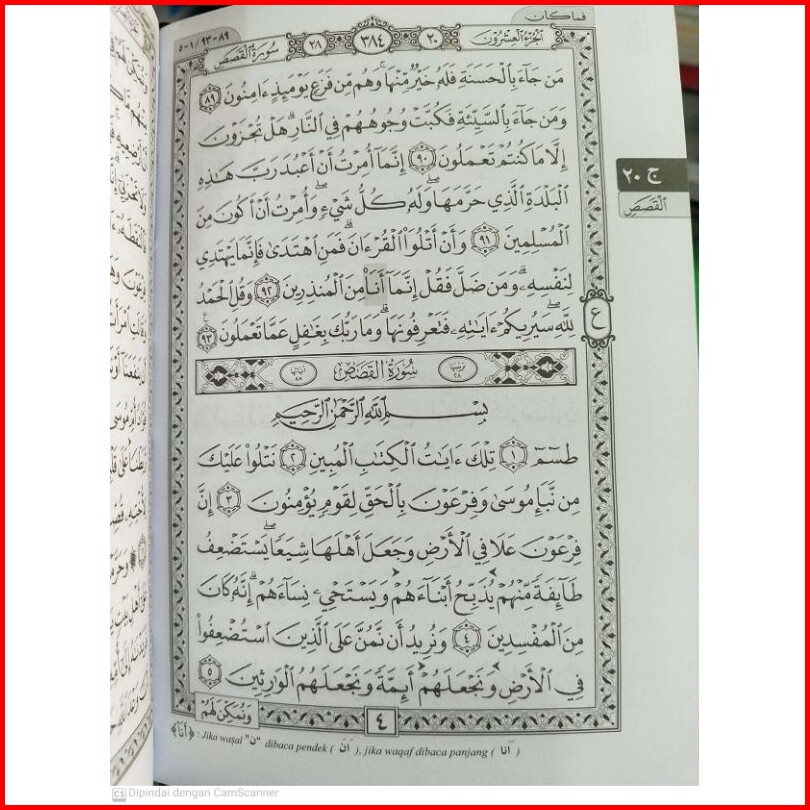 فما كان
الجزء العشرون ٢٠ ٣٨٤ ٢٨ سورة القصص ٨٩-٩٣/١-٥
مَن جَآءَ بِالْحَسَنَةِ فَلَهُ خَيْرٌ مِّنْهَا وَهُم مِّن فَزَعٍ يَوْمَئِذٍ ءَامِنُونَ ٨٩
وَمَن جَآءَ بِالسَّيِّئَةِ فَكُبَّتْ وُجُوهُهُمْ فِي النَّارِ هَلْ تُجْزَوْنَ
إِلَّا مَا كُنتُمْ تَعْمَلُونَ ٩٠ إِنَّمَآ أُمِرْتُ أَنْ أَعْبُدَ رَبَّ هَٰذِهِ
الْبَلْدَةِ الَّذِي حَرَّمَهَا وَلَهُ كُلُّ شَيْءٍ ۖ وَأُمِرْتُ أَنْ أَكُونَ مِنَ
الْمُسْلِمِينَ ٩١ وَأَنْ أَتْلُوَا الْقُرْءَانَ ۖ فَمَنِ اهْتَدَىٰ فَإِنَّمَا يَهْتَدِي
لِنَفْسِهِ ۖ وَمَن ضَلَّ فَقُلْ إِنَّمَآ أَنَا۠ مِنَ الْمُنذِرِينَ ٩٢ وَقُلِ الْحَمْدُ
لِلَّهِ سَيُرِيكُمْ ءَايَٰتِهِ فَتَعْرِفُونَهَا ۚ وَمَا رَبُّكَ بِغَٰفِلٍ عَمَّا تَعْمَلُونَ ٩٣
ع
سُورَةُ القَصَصِ
بِسْمِ اللَّهِ الرَّحْمَٰنِ الرَّحِيمِ
طسٓمٓ ١ تِلْكَ ءَايَٰتُ الْكِتَٰبِ الْمُبِينِ ٢ نَتْلُوا۟ عَلَيْكَ
مِن نَّبَإِ مُوسَىٰ وَفِرْعَوْنَ بِالْحَقِّ لِقَوْمٍ يُؤْمِنُونَ ٣ إِنَّ
فِرْعَوْنَ عَلَا فِي الْأَرْضِ وَجَعَلَ أَهْلَهَا شِيَعًا يَسْتَضْعِفُ
طَآئِفَةً مِّنْهُمْ يُذَبِّحُ أَبْنَآءَهُمْ وَيَسْتَحْيِۦ نِسَآءَهُمْ ۚ إِنَّهُ كَانَ
مِنَ الْمُفْسِدِينَ ٤ وَنُرِيدُ أَن نَّمُنَّ عَلَى الَّذِينَ اسْتُضْعِفُوا۟
فِي الْأَرْضِ وَنَجْعَلَهُمْ أَئِمَّةً وَنَجْعَلَهُمُ الْوَٰرِثِينَ ٥
وَنُمَكِّنَ لَهُمْ
٤
﴿أَنَا﴾ : Jika waṣal "ن" dibaca pendek ( اَنَ ), jika waqaf dibaca panjang ( اَنَا )
ج ٢٠
القَصَصِ
CS Dipindai dengan CamScanner